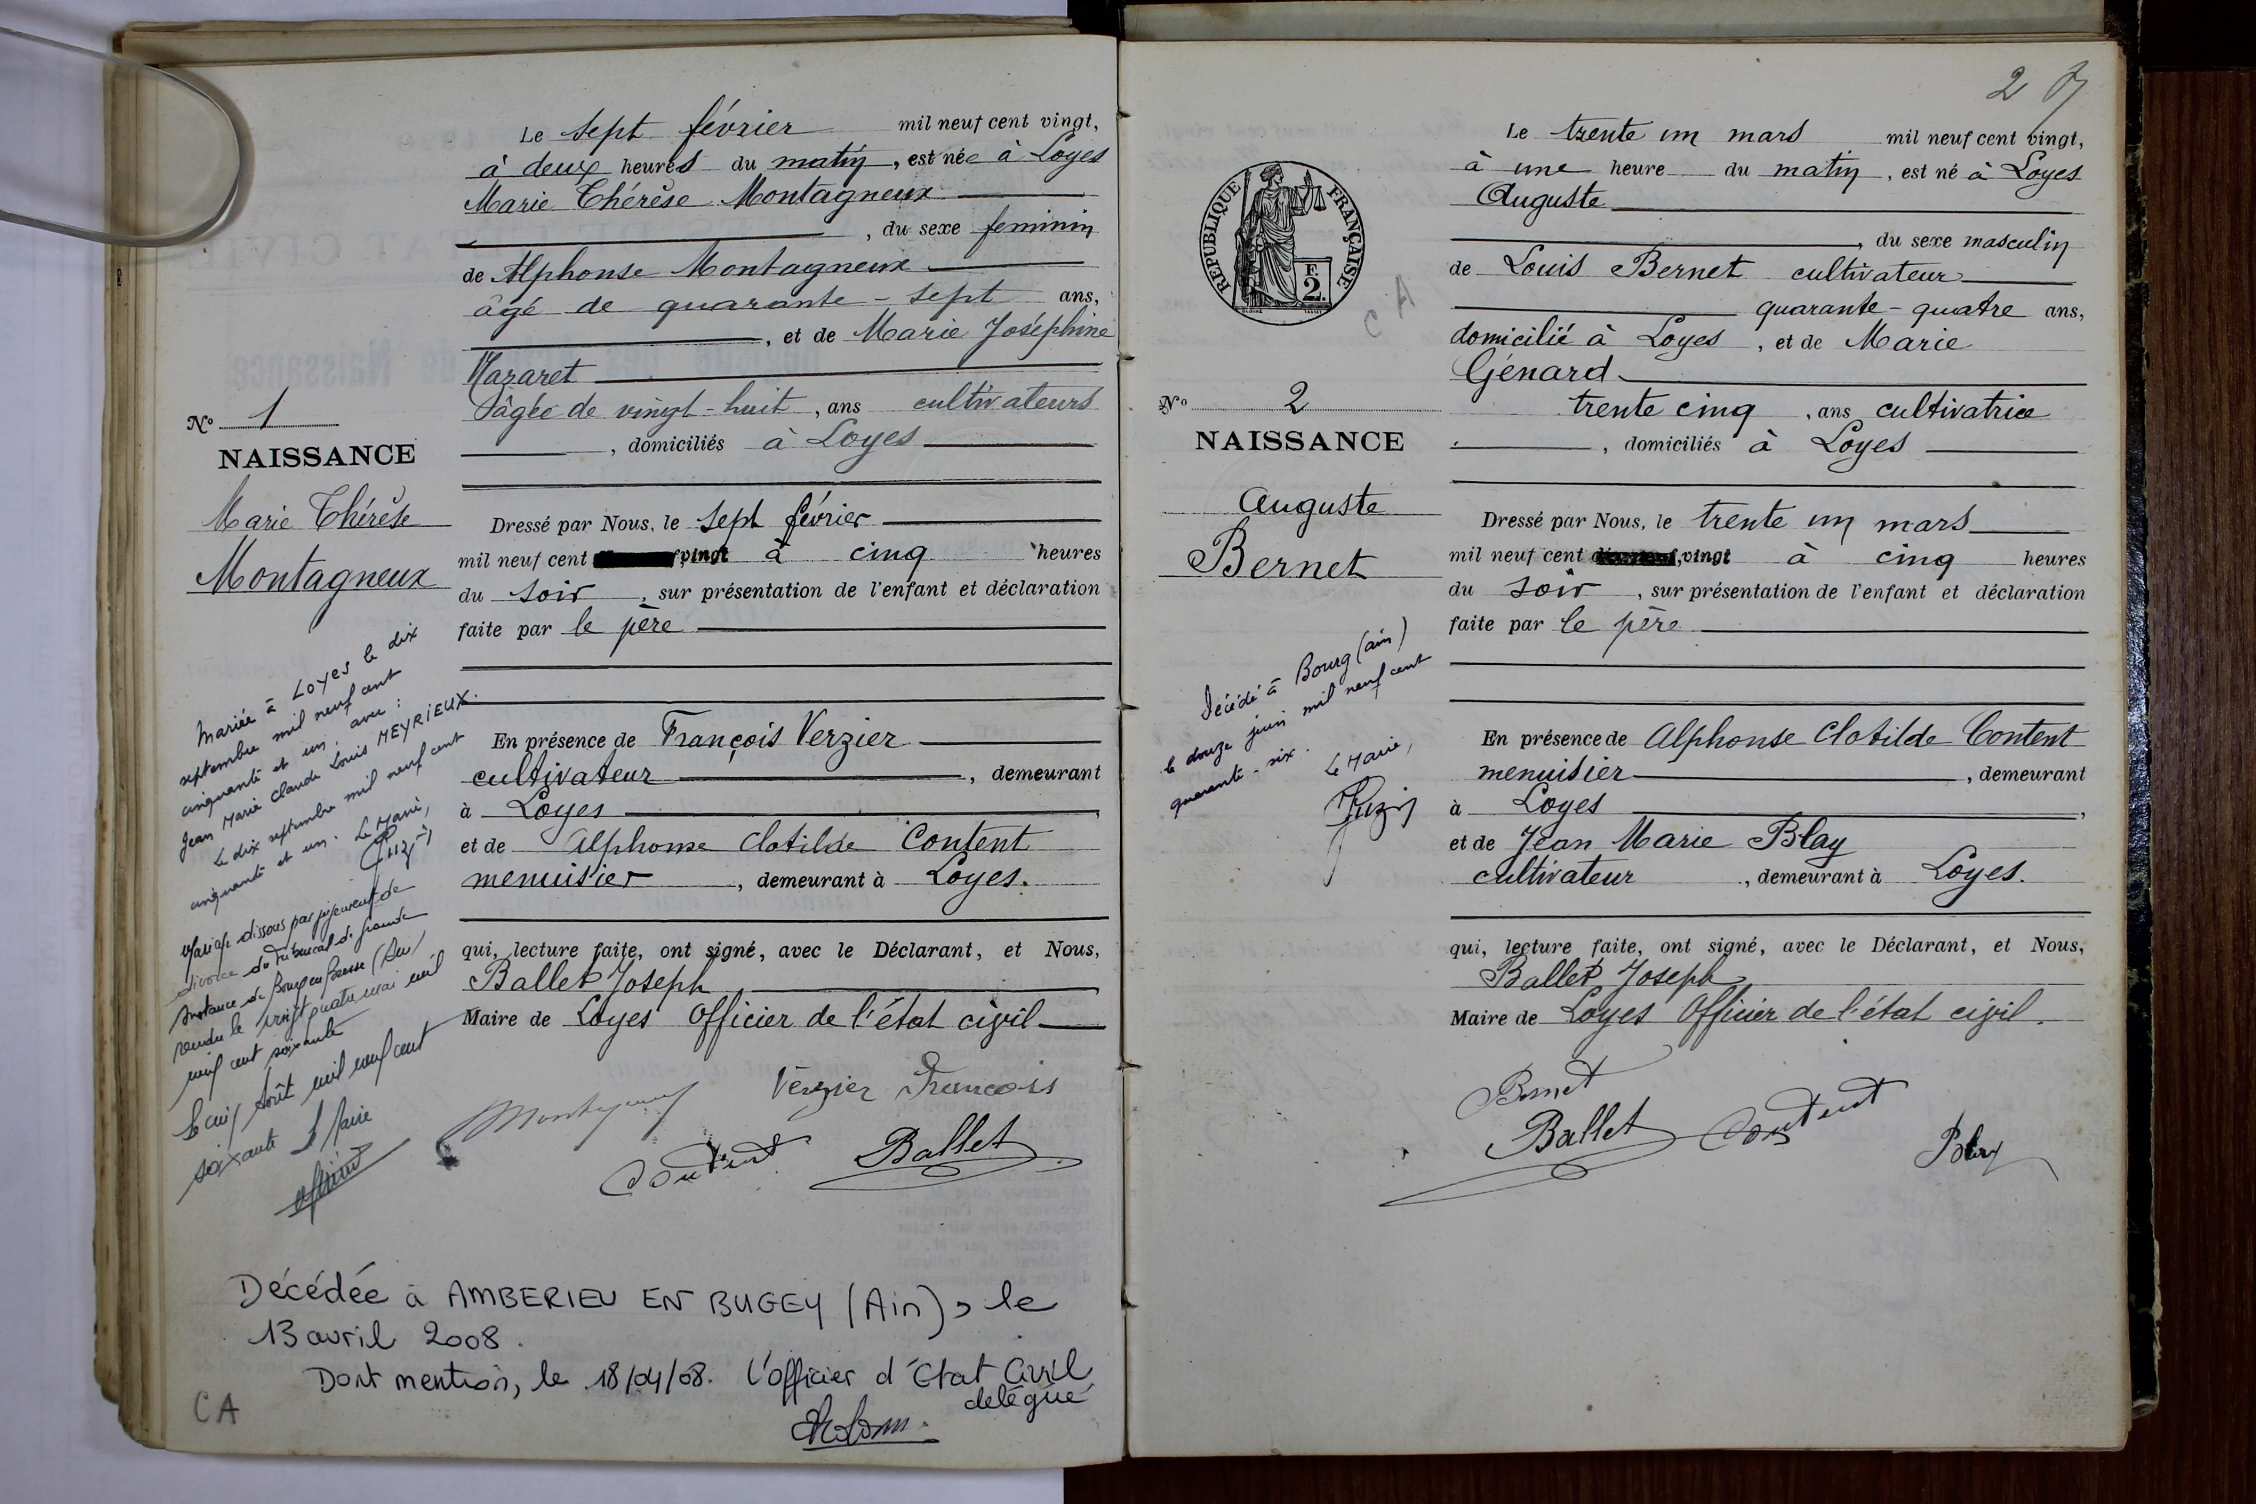 Le sept février mil neuf cent vingt,
à deux heures du matin, est née à Loyes
Marie Thérèse Montagneux
, du sexe feminin
de Alphonse Montagneux
âgé de quarante-sept ans,
, et de Marie Joséphine
Nazaret
âgée de vingt-huit, ans cultivateurs
, domiciliés à Loyes
Nº 1
NAISSANCE
Marie Thérèse
Montagneux
Dressé par Nous, le sept février
mil neuf cent vingt à cinq heures
du soir, sur présentation de l'enfant et déclaration
faite par le père
En présence de François Verzier
cultivateur, demeurant
à Loyes
et de Alphonse Clotilde Content
menuisier, demeurant à Loyes.
qui, lecture faite, ont signé, avec le Déclarant, et Nous,
Ballet Joseph
Maire de Loyes Officier de l'état civil
Mariée à Loyes le dix
septembre mil neuf cent
cinquante et un avec :
Jean Marie Claude Louis MEYRIEUX.
Le dix septembre mil neuf cent
cinquante et un. Le Maire,
Mariage dissous par jugement de
divorce du Tribunal de grande
Instance de Bourg en Bresse (Ain)
rendu le vingt quatre mai mil
neuf cent soixante
Le cinq Août mil neuf cent
soixante Le Maire
Montagneux
Verzier François
Content Ballet
Décédée à AMBERIEU EN BUGEY (Ain), le
13 avril 2008.
Dont mention, le 18/04/08. L'officier d'Etat Civil
délégué
CA
2
RÉPUBLIQUE FRANÇAISE
F.
2.
CA
Le trente un mars mil neuf cent vingt,
à une heure du matin, est né à Loyes
Auguste
, du sexe masculin
de Louis Bernet cultivateur
quarante-quatre ans,
domicilié à Loyes, et de Marie
Génard
trente cinq, ans cultivatrice
, domiciliés à Loyes
Nº 2
NAISSANCE
Auguste
Bernet
Dressé par Nous, le trente un mars
mil neuf cent vingt à cinq heures
du soir, sur présentation de l'enfant et déclaration
faite par le père
Décédé à Bourg (ain)
le douze juin mil neuf cent
quarante-six.
Le Maire,
En présence de Alphonse Clotilde Content
menuisier, demeurant
à Loyes,
et de Jean Marie Blay
cultivateur, demeurant à Loyes.
qui, lecture faite, ont signé, avec le Déclarant, et Nous,
Ballet Joseph
Maire de Loyes Officier de l'état civil.
Bernet
Ballet Content
Blay